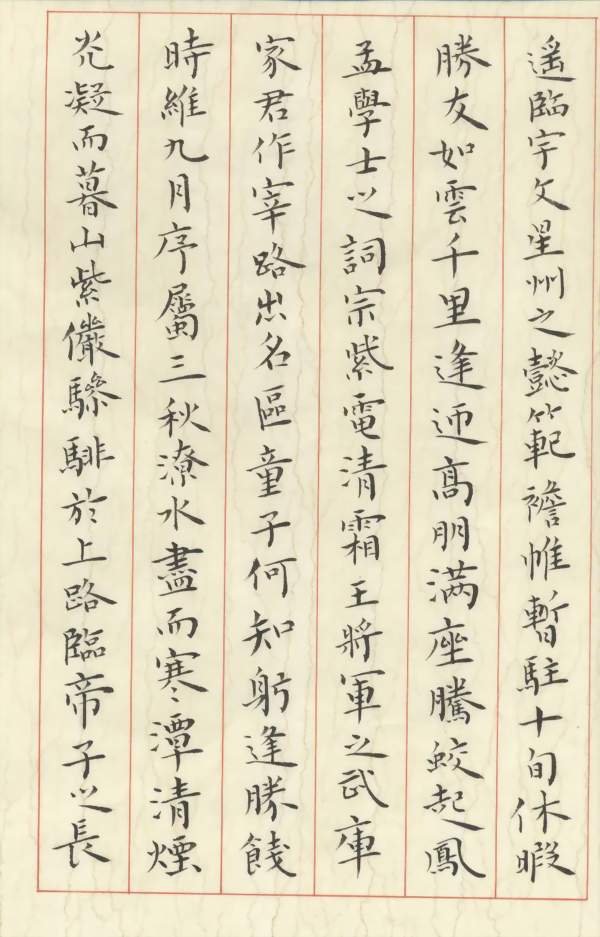 遥臨宇文星州之懿範襜帷暫駐十旬休暇
勝友如雲千里逢迎高朋满座騰蛟起鳳
孟學士之詞宗紫電清霜王將軍之武庫
家君作宰路出名區童子何知躬逢勝餞
時維九月序屬三秋潦水盡而寒潭清煙
光凝而暮山紫儼驂騑於上路臨帝子之長